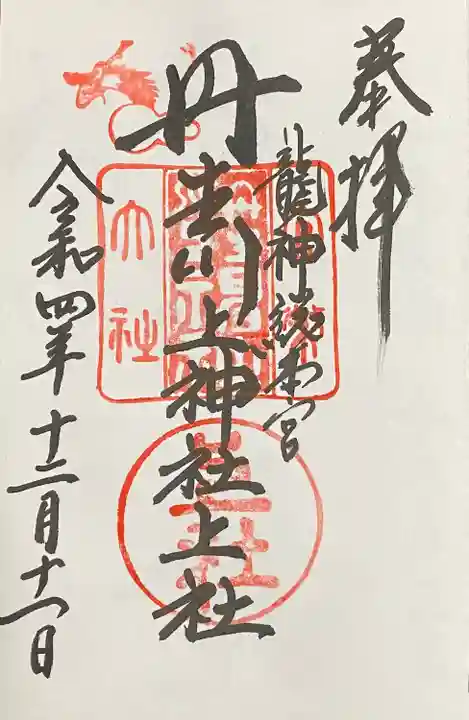 奉拝
龍神総本宮
丹生川上神社上社
令和四年十二月十一日
大社
上社